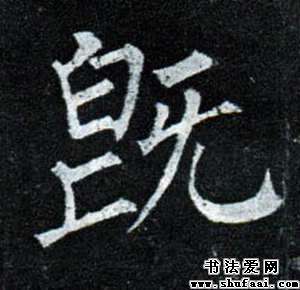 既
书法爱网
www.shufaai.com